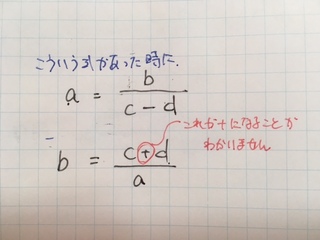 こういう式があった時に.
a = b / (c - d)
b = (c + d) / a
これが+になることが
わかいません